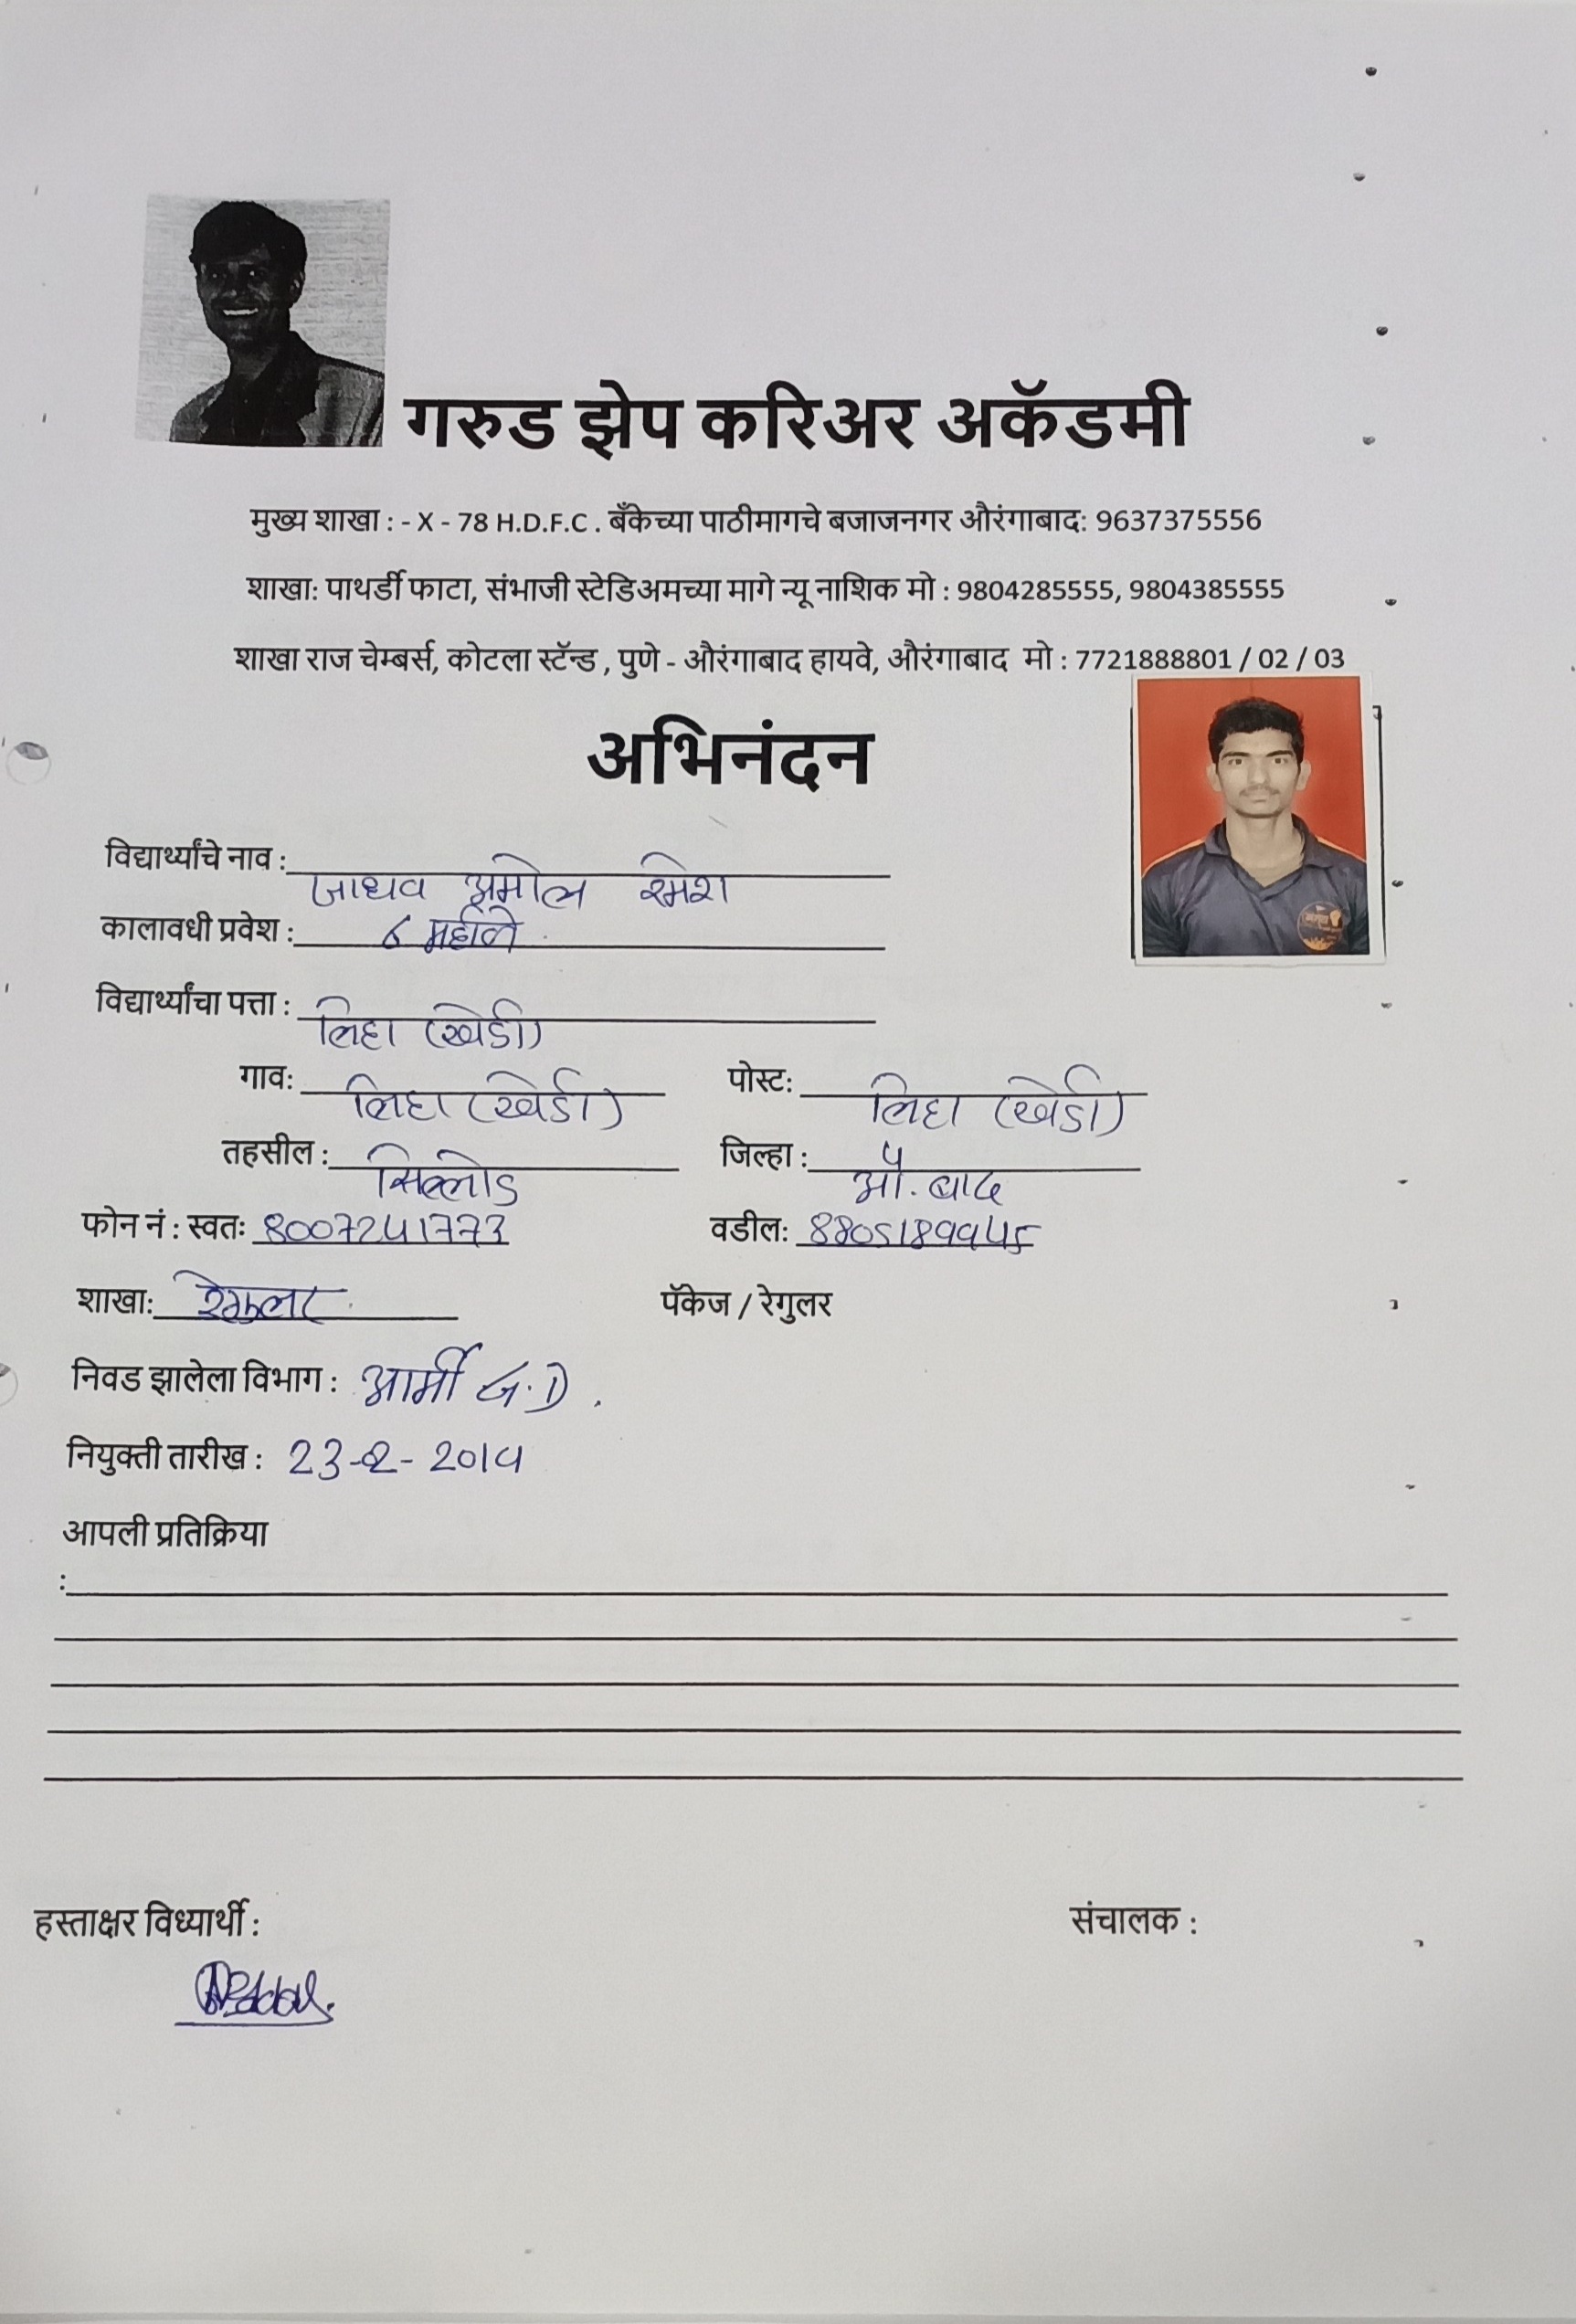 गरुड झेप करिअर अकॅडमी
मुख्य शाखा : - X - 78 H.D.F.C . बँकेच्या पाठीमागचे बजाजनगर औरंगाबाद: 9637375556
शाखा: पाथर्डी फाटा, संभाजी स्टेडिअमच्या मागे न्यू नाशिक मो : 9804285555, 9804385555
शाखा राज चेम्बर्स, कोटला स्टॅन्ड , पुणे - औरंगाबाद हायवे, औरंगाबाद मो : 7721888801 / 02 / 03
अभिनंदन
विद्यार्थ्यांचे नाव : जाधव अमोल रमेश
कालावधी प्रवेश : ८ महीने
विद्यार्थ्यांचा पत्ता : लिहा (खेडी)
गाव: लिहा (खेडी) पोस्ट: लिहा (खेडी)
तहसील : सिल्लोड जिल्हा : औ. बाद
फोन नं : स्वतः वडील:
शाखा: रेगुलर पॅकेज / रेगुलर
निवड झालेला विभाग : आर्मी G.D.
नियुक्ती तारीख :
आपली प्रतिक्रिया
:
हस्ताक्षर विध्यार्थी : संचालक :